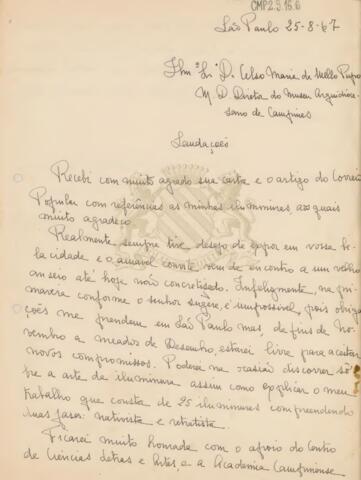 CMP2.9.16.6
São Paulo 25-8-67
Ilm º Sr D. Celso Maria de Mello Pupo
M D Diretor do Museu Arquidioce-
sano de Campinas
Saudações
Recebi com muito agrado sua carta e o artigo do Correio
Popular com referências as minhas iluminuras, aos quais
muito agradeço.
Realmente sempre tive desejo de expor em vossa be-
la cidade e o amavel convite vem de encontro a um velho
anseio até hoje não concretisado. Infelizmente, na pri-
mavera conforme o senhor sugere, é impossivel, pois obriga
ções me prendem em São Paulo mas, de fins de No-
vembro a meados de Dezembro, estarei livre para aceitar
novos compromissos. Poderei na ocasião discorrer sô-
bre a arte da iluminura assim como explicar o meu
trabalho que consta de 25 iluminuras compreendendo
duas fases: nativista e retratista.
Ficarei muito honrada com o apoio do Centro
de Ciências Letras e Artes e a Academia Campinense